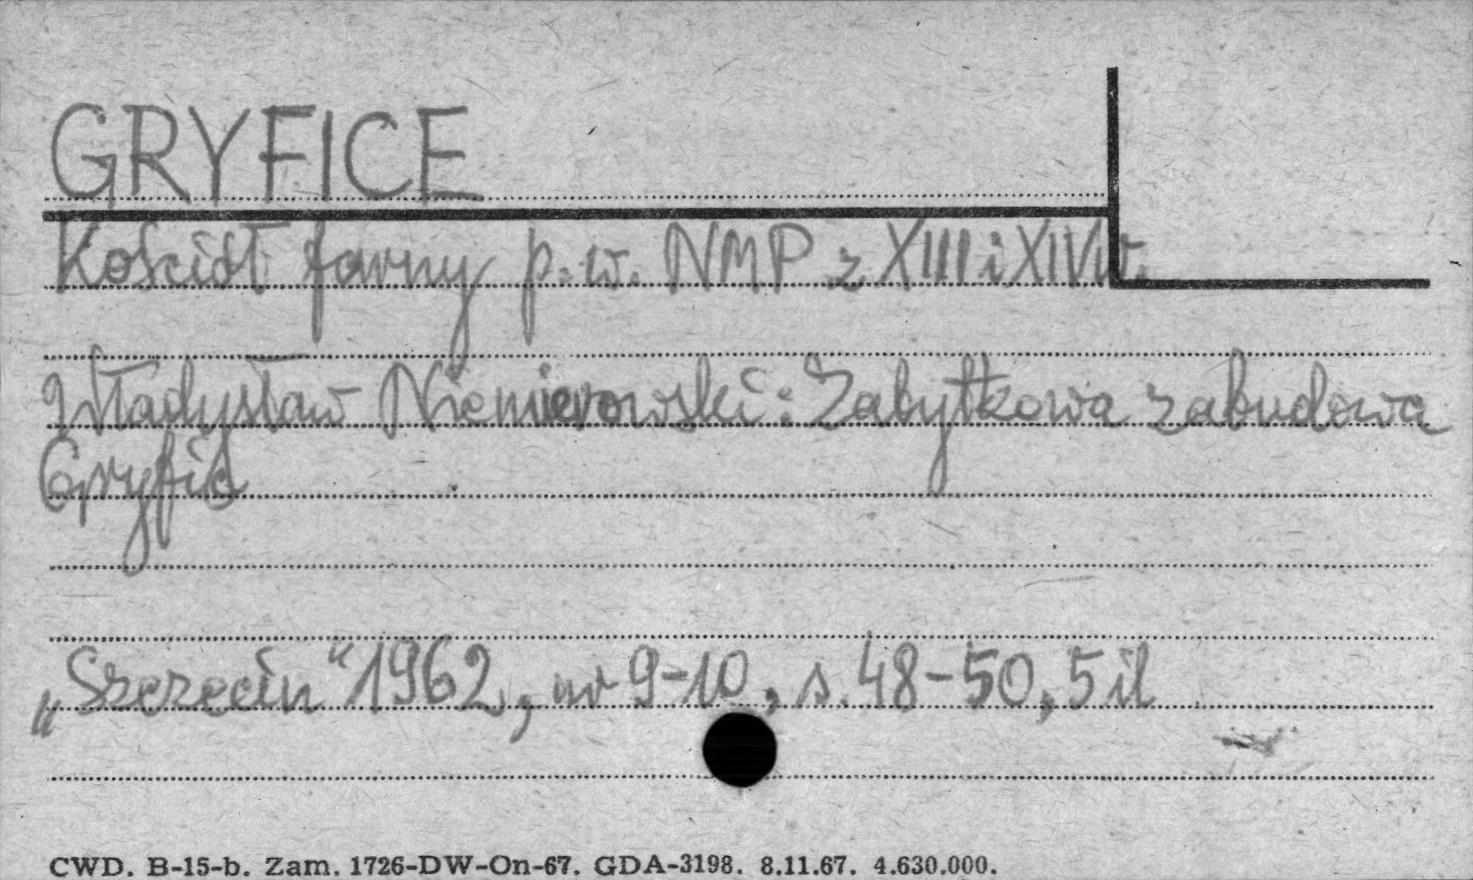 GRYFICE
Kościół farny p.w. NMP z XIII i XIV w.
Władysław Niemierowski: Zabytkowa zabudowa
Gryfic
„Szczecin" 1962, nr 9-10, s. 48-50, 5 il
CWD. B-15-b. Zam. 1726-DW-On-67. GDA-3198. 8.11.67. 4.630.000.